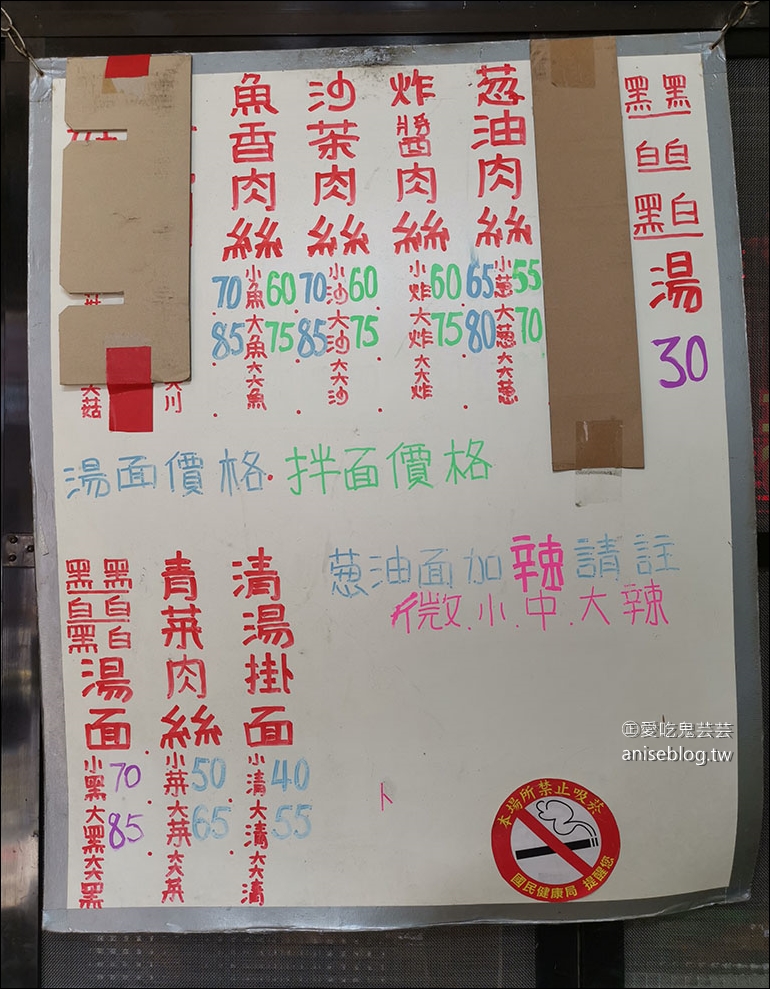 黑黑
白白
黑白
湯
30
葱油肉絲
65 小蔥 55
80 大蔥 70
大大蔥
炸醬肉絲
小炸 60
大炸 75
大大炸
沙茶肉絲
70 小沙 60
85 大沙 75
大大沙
魚香肉絲
70 小魚 60
85 大魚 75
大大魚
大川
大菇
湯面價格.拌面價格
蔥油面加辣請註
微.小.中.大辣
清湯掛面
小清 40
大清 55
大大清
青菜肉絲
小菜 50
大菜 65
大大菜
黑黑
白白
黑白
湯面
小黑 70
大黑 85
大大黑
㊣愛吃鬼芸芸
aniseblog.tw
本場所禁止吸菸
國民健康局 提醒您